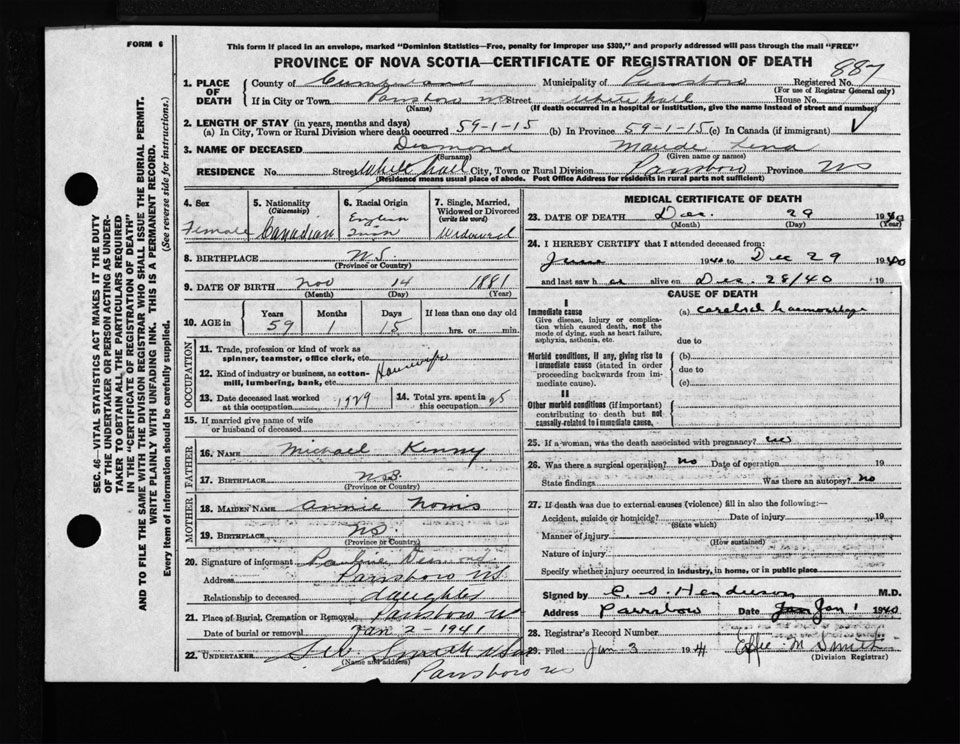 FORM 6
This form if placed in an envelope, marked "Dominion Statistics—Free, penalty for improper use $300," and properly addressed will pass through the mail "FREE"
PROVINCE OF NOVA SCOTIA—CERTIFICATE OF REGISTRATION OF DEATH
887
1. PLACE OF DEATH
County of Cumberland Municipality of Parrsboro Registered No.
(For use of Registrar General only)
If in City or Town Parrsboro NS Street White Hall House No.
(Name) (If death occurred in a hospital or institution, give the name instead of street and number)
2. LENGTH OF STAY (in years, months and days)
(a) In City, Town or Rural Division where death occurred 59-1-15 (b) In Province 59-1-15 (c) In Canada (if immigrant)
3. NAME OF DECEASED Desmond Maude Lena
(Surname) (Given name or names)
RESIDENCE No. Street White Hall City, Town or Rural Division Parrsboro Province NS
(Residence means usual place of abode. Post Office Address for residents in rural parts not sufficient)
4. Sex
Female
5. Nationality
(Citizenship)
Canadian
6. Racial Origin
English
7. Single, Married,
Widowed or Divorced
(write the word)
Widowed
8. BIRTHPLACE N.S.
(Province or Country)
9. DATE OF BIRTH Nov 14 1881
(Month) (Day) (Year)
10. AGE in
Years Months Days If less than one day old
59 1 15 hrs. or min.
OCCUPATION
11. Trade, profession or kind of work as
spinner, teamster, office clerk, etc.
12. Kind of industry or business, as cotton-
mill, lumbering, bank, etc.
Housewife
13. Date deceased last worked
at this occupation 1929
14. Total yrs. spent in
this occupation 25
15. If married give name of wife
or husband of deceased
FATHER
16. NAME Michael Kenny
17. BIRTHPLACE N.B.
(Province or Country)
MOTHER
18. MAIDEN NAME Annie
19. BIRTHPLACE NS.
(Province or Country)
20. Signature of informant Pauline Desmond
Address Parrsboro NS
Relationship to deceased daughter
21. Place of Burial, Cremation or Removal Parrsboro NS
Date of burial or removal Jan 2 1941
22. UNDERTAKER
(Name and address)
Parrsboro NS
MEDICAL CERTIFICATE OF DEATH
23. DATE OF DEATH Dec. 29 1940
(Month) (Day) (Year)
24. I HEREBY CERTIFY that I attended deceased from:
June 1940 to Dec 29 1940
and last saw h er alive on Dec. 28/40
CAUSE OF DEATH
I
Immediate cause
Give disease, injury or complica-
tion which caused death, not the
mode of dying, such as heart failure,
asphyxia, asthenia, etc.
(a) cerebral haemorrhage
due to
Morbid conditions, if any, giving rise to
immediate cause (stated in order
proceeding backwards from im-
mediate cause).
(b)
due to
(c)
II
Other morbid conditions (if important)
contributing to death but not
causally-related to immediate cause.
25. If a woman, was the death associated with pregnancy? no
26. Was there a surgical operation? no Date of operation 19
State findings Was there an autopsy? no
27. If death was due to external causes (violence) fill in also the following:—
Accident, suicide or homicide? Date of injury 19
(State which)
Manner of injury
(How sustained)
Nature of injury
Specify whether injury occurred in industry, in home, or in public place
Signed by C. S. Henderson M.D.
Address Parrsboro Date Jan 1 1940
28. Registrar's Record Number
29. Filed Jan 3 1941 Effie M Smith
(Division Registrar)
SEC. 46—VITAL STATISTICS ACT MAKES IT THE DUTY
OF THE UNDERTAKER OR PERSON ACTING AS UNDER-
TAKER TO OBTAIN ALL THE PARTICULARS REQUIRED
IN THE "CERTIFICATE OF REGISTRATION OF DEATH"
AND TO FILE THE SAME WITH THE DIVISION REGISTRAR WHO SHALL ISSUE THE BURIAL PERMIT.
WRITE PLAINLY WITH UNFADING INK. THIS IS A PERMANENT RECORD.
Every item of information should be carefully supplied. (See reverse side for instructions.)